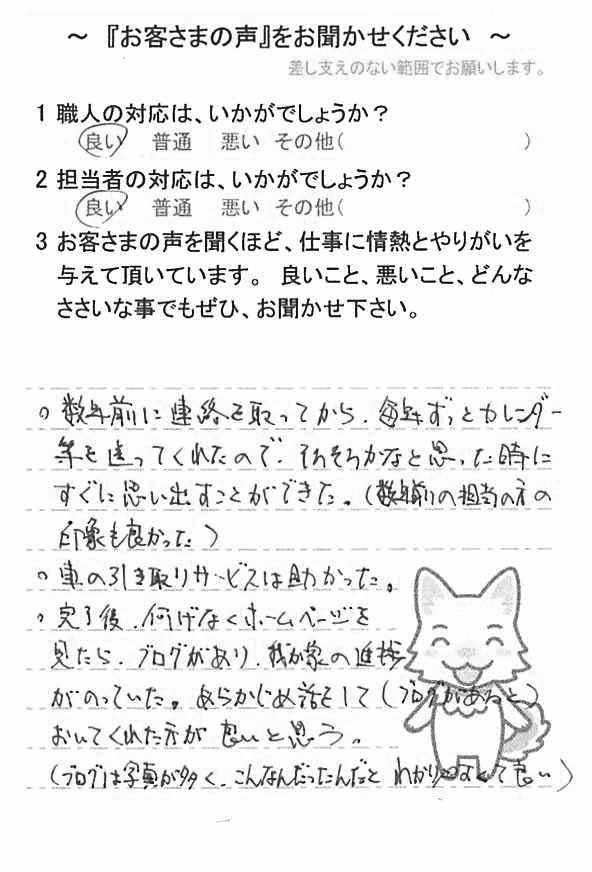 ～ 『お客さまの声』をお聞かせください ～
差し支えのない範囲でお願いします。
1 職人の対応は、いかがでしょうか？
良い 普通 悪い その他( )
2 担当者の対応は、いかがでしょうか？
良い 普通 悪い その他( )
3 お客さまの声を聞くほど、仕事に情熱とやりがいを
与えて頂いています。 良いこと、悪いこと、どんな
ささいな事でもぜひ、お聞かせ下さい。
。数年前に連絡を取ってから、毎年ずっとカレンダー
等を送ってくれたので、そろそろかなと思った時に
すぐに思い出すことができた。(数年前の担当の方の
印象も良かった)
。車の引き取りサービスは助かった。
。完了後、何げなくホームページを
見たら、ブログがあり、我が家の進捗
がのっていた。あらかじめ話をして(ブログがあると)
おいてくれた方が良いと思う。
(ブログは写真が多く、こんなんだったんだと わかりやすくて良い)